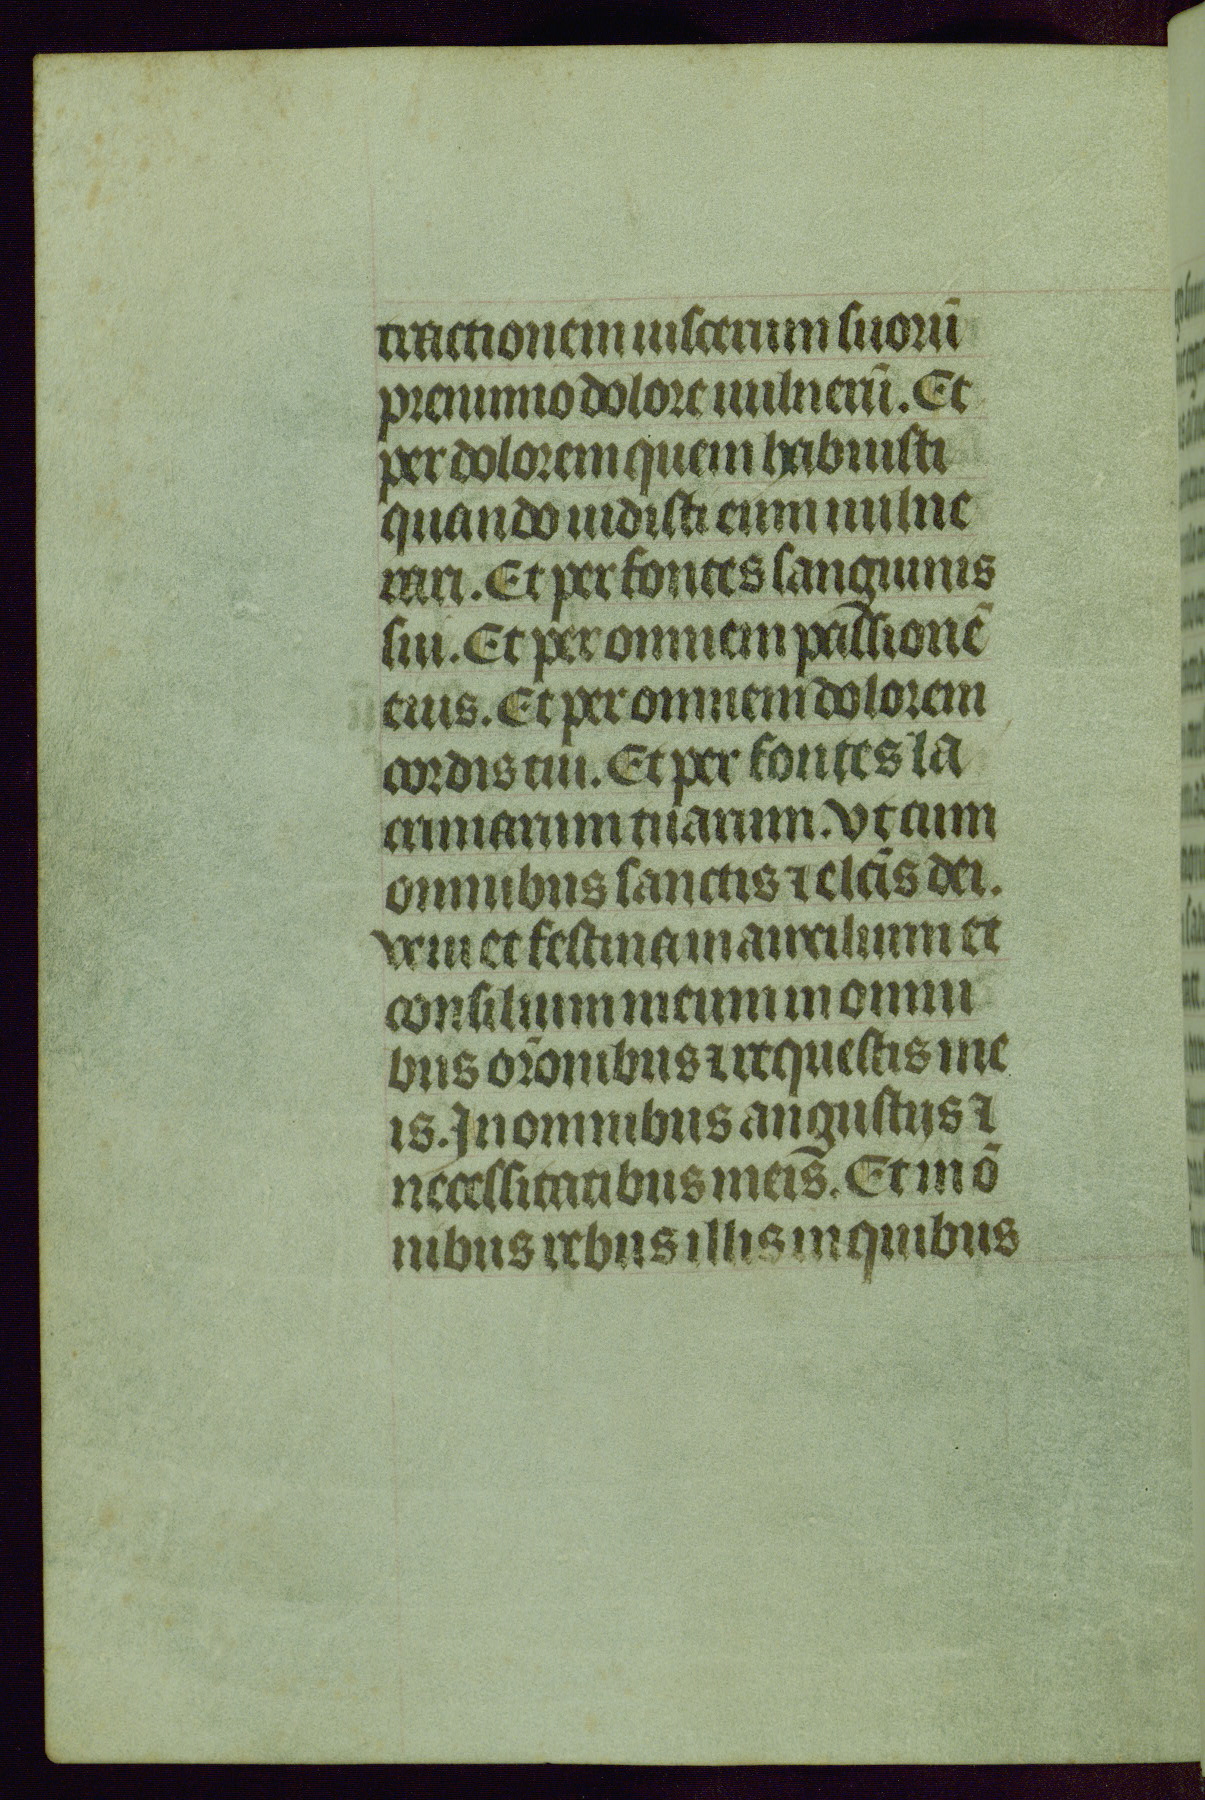 tractionem uiscerum suorū
pre nimio dolore uulnerū. Et
per dolorem quem habuisti
quando uidisti eum uulne
rari. Et per fontes sanguinis
sui. Et per omnem passionē
eius. Et per omnem dolorem
cordis tui. Et per fontes la
crimarum tuarum. Vt cum
omnibus sanctis ⁊ elc̄is dei.
Veni et festina in auxilium et
consilium meum in omni
bus or̄onibus ⁊ requestis me
is. In omnibus angustijs ⁊
necessitatibus meis. Et in ō
nibus rebus illis in quibus